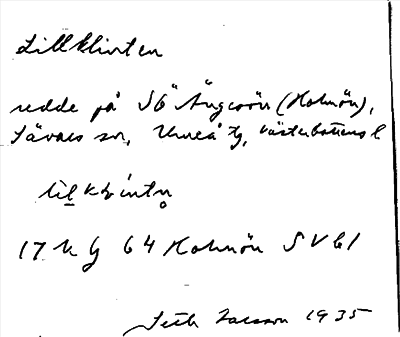 Lillklinten
redde på Sö Ängesön (Holmön),
Sävars sn, Umeå tg, Västerbottens l
17 k g 64 Holmön SV bl
Larsson 1935